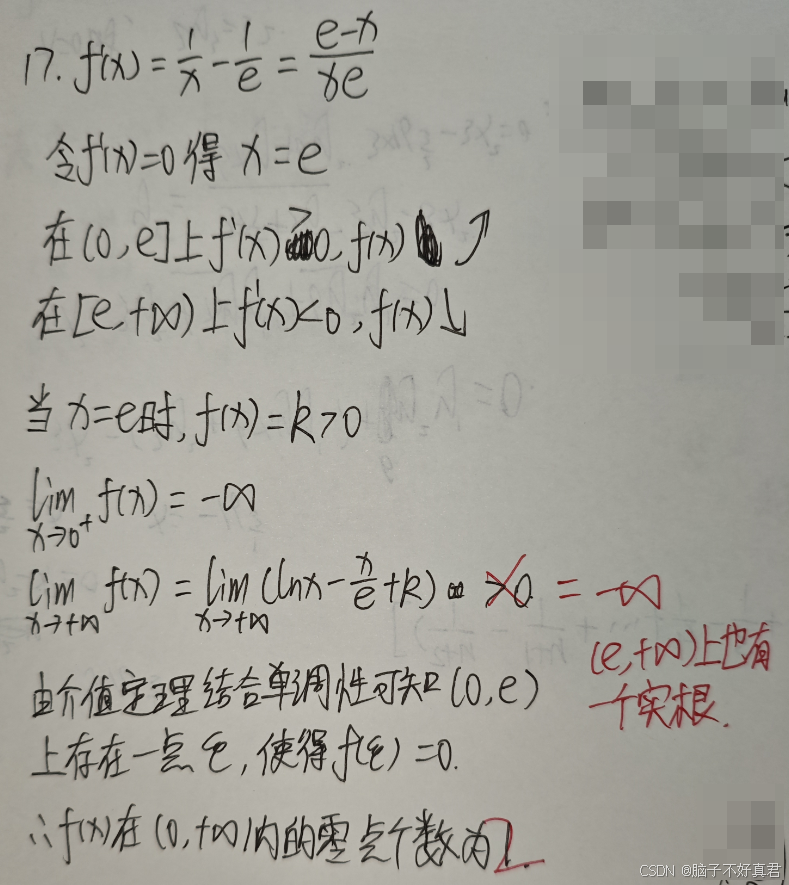 17. f'(x) = 1/x - 1/e = (e-x)/(xe)
令f'(x)=0得 x=e
在(0,e]上f'(x)>0, f(x)↗
在[e,+∞)上f'(x)<0, f(x)↓
当x=e时, f(x)=k>0
lim x→0⁺ f(x) = -∞
lim x→+∞ f(x) = lim x→+∞ (lnx - x/e + k) >0 = -∞
(e,+∞)上也有
一个实根.
由介值定理结合单调性可知(0,e)
上存在一点ξ, 使得f(ξ)=0.
∴f(x)在(0,+∞)内的零点个数为2.
CSDN @脑子不好真君